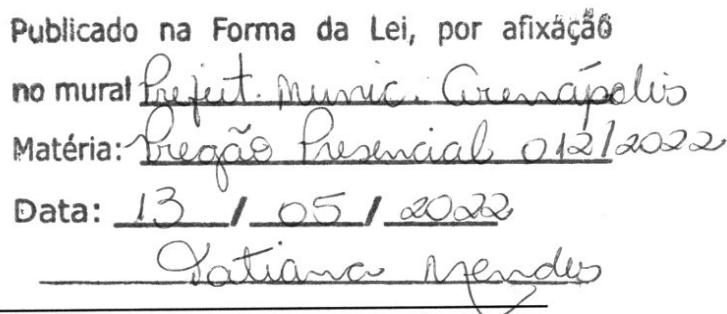 Publicado na Forma da Lei, por afixação
no mural Prefeit. Munic. Arenápolis
Matéria: Pregão Presencial 012/2022
Data: 13 / 05 / 2022
Tatiana Mendes